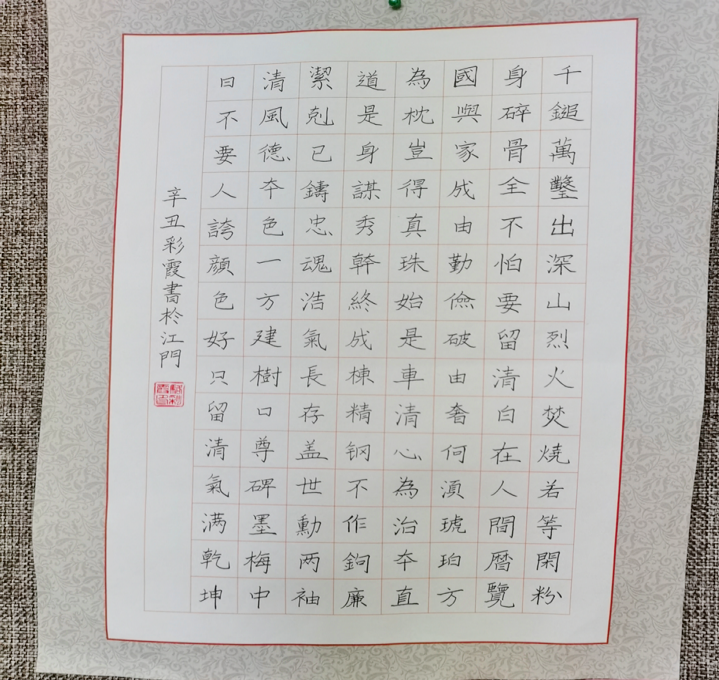 千鎚萬鑿出深山烈火焚燒若等閑粉
身碎骨全不怕要留清白在人間曆覽
國與家成由勤儉破由奢何湏琥珀方
為枕豈得真珠始是車清心為治夲直
道是身謀秀幹終成棟精钢不作鉤廉
潔剋己鑄忠魂浩氣長存盖世勳两袖
清風德夲色一方建樹口尊碑墨梅中
曰不要人誇顔色好只留清氣满乾坤
辛丑彩霞書於江門